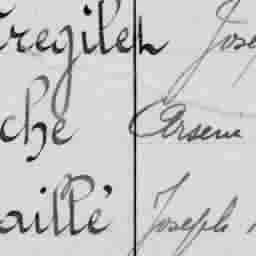 regilet Jose
che Arsene
aillé Joseph